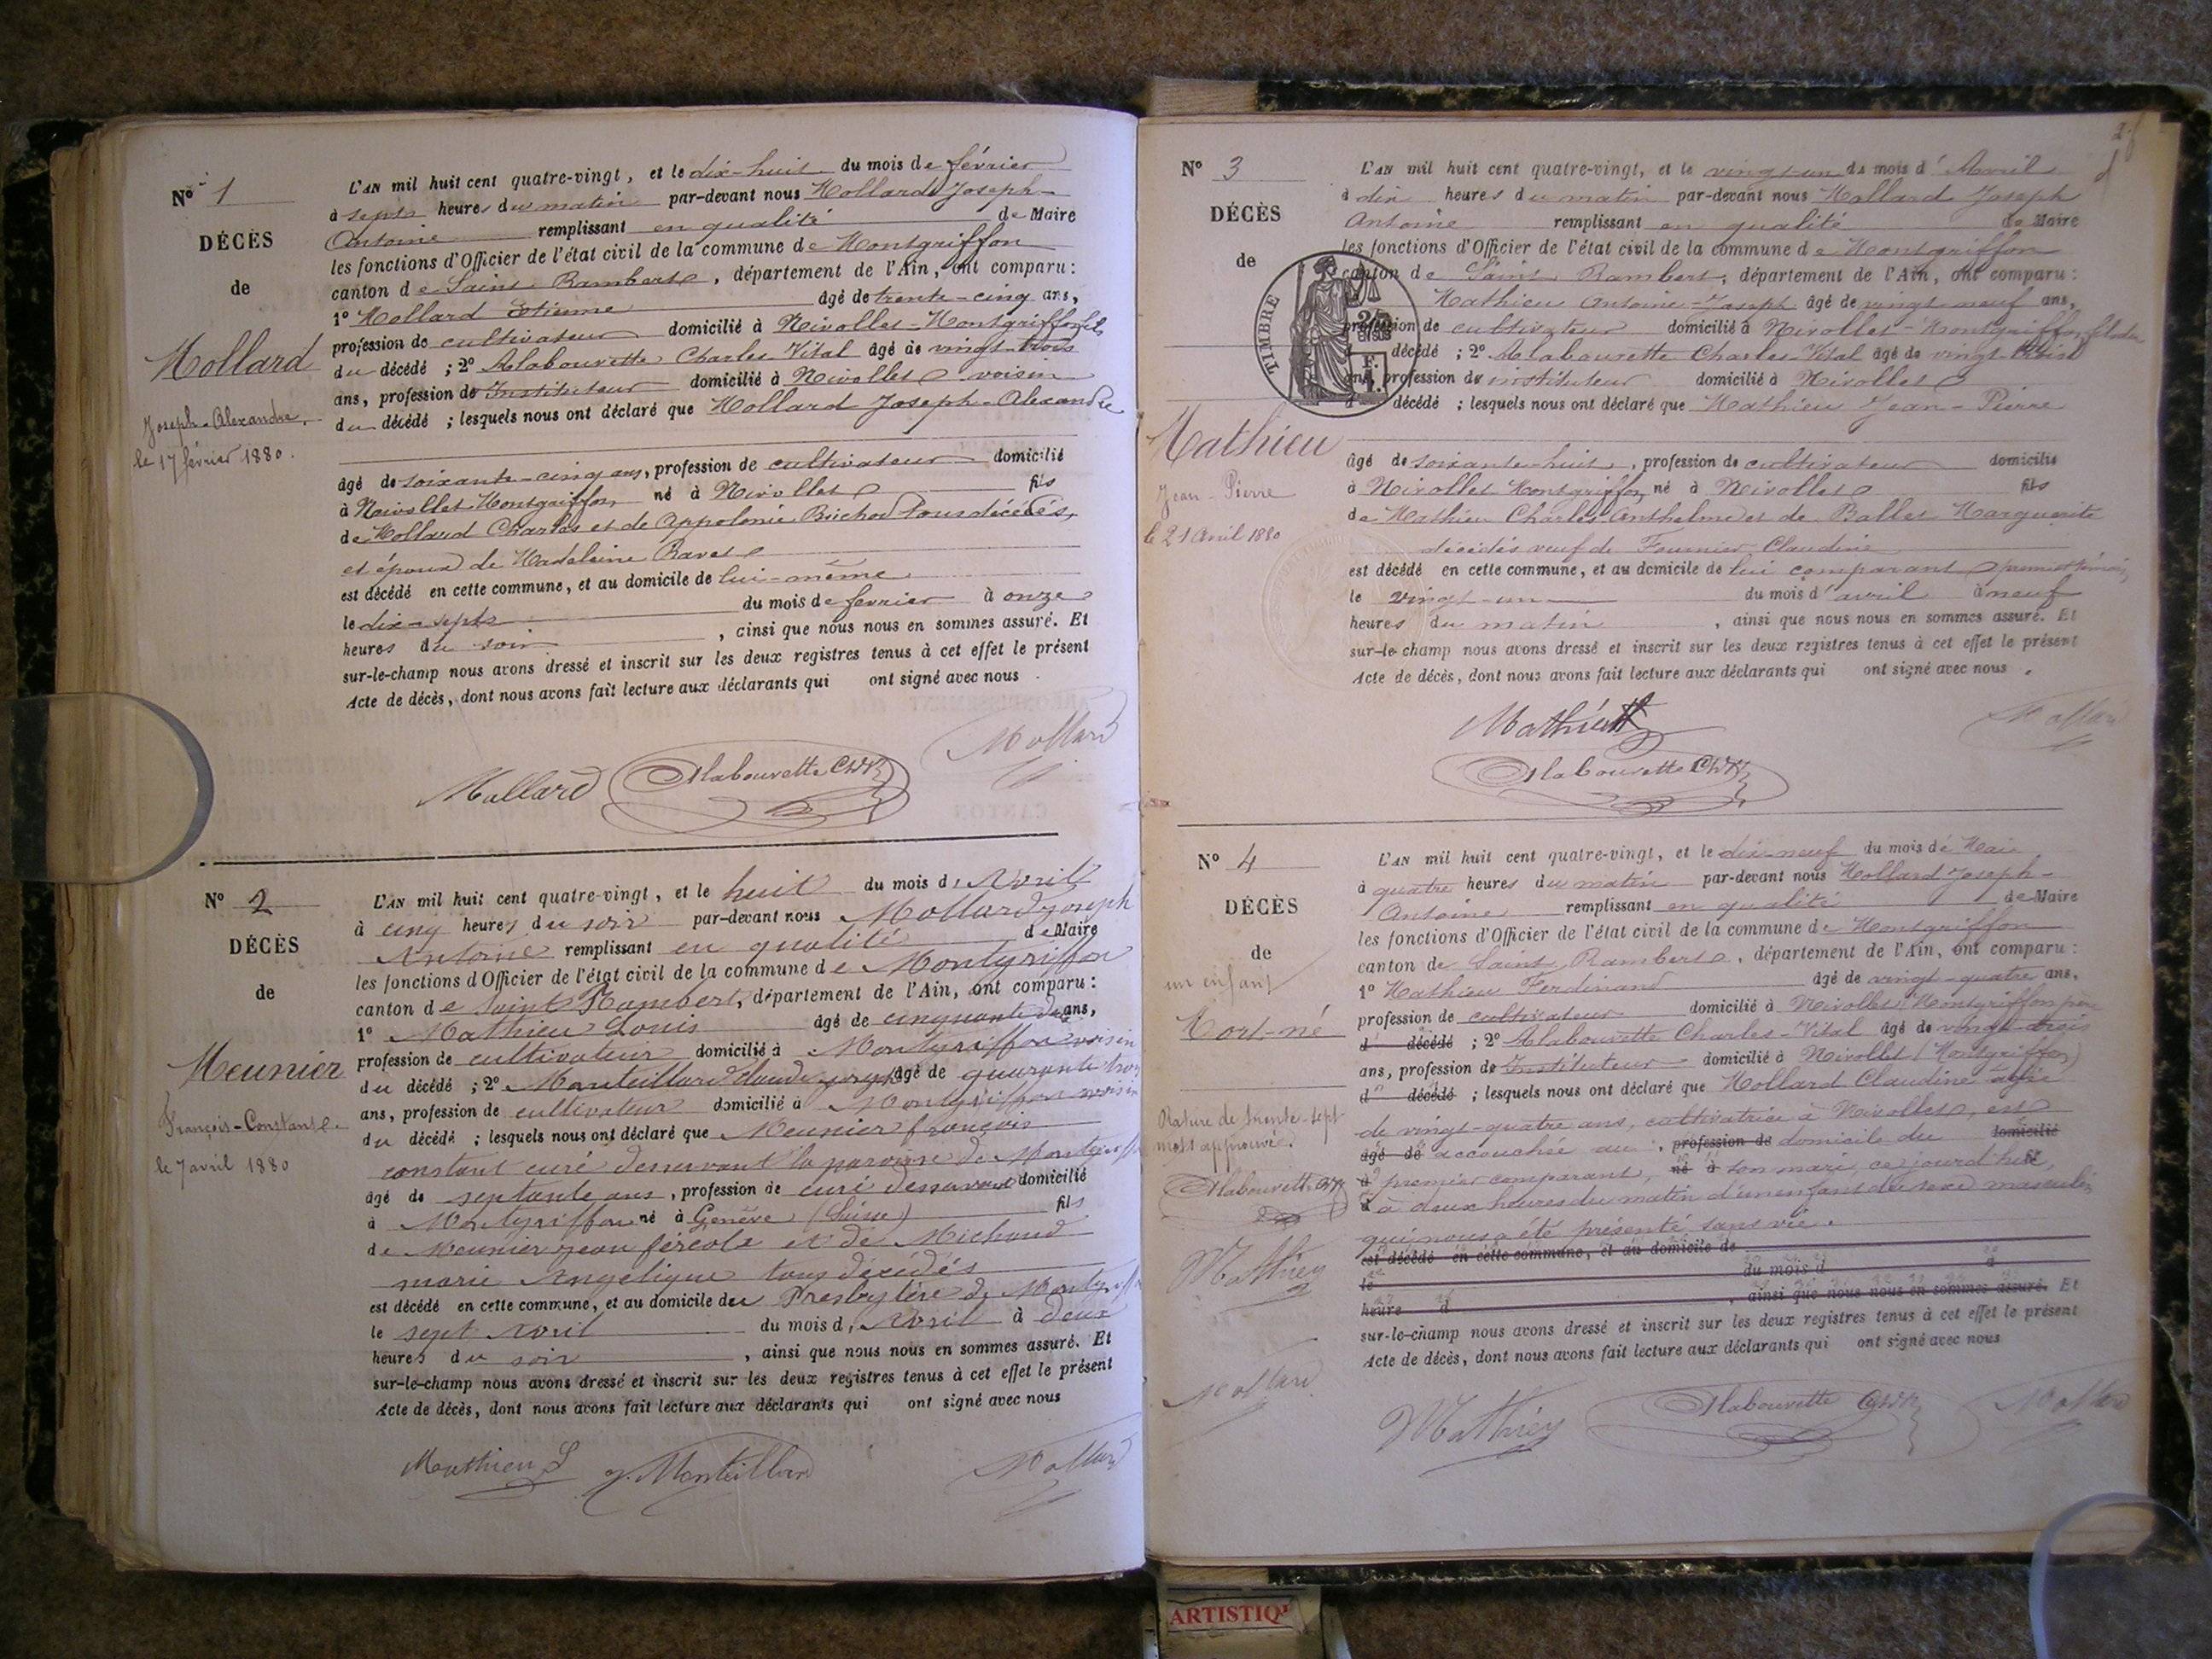 N° 1
DÉCÈS
de
Mollard
Joseph-Alexandre.
le 17 février 1880.
L'AN mil huit cent quatre-vingt, et le dix-huit du mois de février
à sept heures du matin par-devant nous Mollard Joseph-
Antoine remplissant en qualité de Maire
les fonctions d'Officier de l'état civil de la commune de Montgriffon
canton de Saint Rambert, département de l'Ain, ont comparu :
1° Mollard Etienne âgé de trente-cinq ans,
profession de cultivateur domicilié à Nivollet-Montgriffon fils
du décédé ; 2° Alabouvette Charles Vital âgé de vingt-trois
ans, profession de Instituteur domicilié à Nivollet voisin
du décédé ; lesquels nous ont déclaré que Mollard Joseph-Alexandre
âgé de soixante-cinq ans, profession de cultivateur domicilié
à Nivollet Montgriffon né à Nivollet fils
de Mollard Charles et de Appolonie Brichod tous décédés,
et époux de Madeleine Ravet
est décédé en cette commune, et au domicile de lui-même
le dix-sept du mois de février à onze
heures du soir, ainsi que nous nous en sommes assuré. Et
sur-le-champ nous avons dressé et inscrit sur les deux registres tenus à cet effet le présent
Acte de décès, dont nous avons fait lecture aux déclarants qui ont signé avec nous.
Mollard
Mollard Alabouvette ChV
N° 2
DÉCÈS
de
Meunier
François-Constant
le 7 avril 1880
L'AN mil huit cent quatre-vingt, et le huit du mois d'Avril
à cinq heures du soir par-devant nous Mollard joseph
Antoine remplissant en qualité de Maire
les fonctions d'Officier de l'état civil de la commune de Montgriffon
canton de Saint Rambert, département de l'Ain, ont comparu :
1° Mathieu Louis âgé de cinquante ans,
profession de cultivateur domicilié à Montgriffon voisin
du décédé ; 2° Monteillard Claude âgé de quarante trois
ans, profession de cultivateur domicilié à Montgriffon voisin
du décédé ; lesquels nous ont déclaré que Meunier françois
constant curé desservant la paroisse de Montgriffon
âgé de septante ans, profession de curé desservant domicilié
à Montgriffon né à Genève (Suisse) fils
de Meunier jean féréole et de Michaud
marie Angelique tous décédés
est décédé en cette commune, et au domicile du Presbytère de Montgriffon
le sept Avril du mois d'Avril à deux
heures du soir, ainsi que nous nous en sommes assuré. Et
sur-le-champ nous avons dressé et inscrit sur les deux registres tenus à cet effet le présent
Acte de décès, dont nous avons fait lecture aux déclarants qui ont signé avec nous
Mathieu L Monteillard Mollard
N° 3
DÉCÈS
de
TIMBRE
Mathieu
Jean-Pierre
le 21 Avril 1880
L'AN mil huit cent quatre-vingt, et le vingt-un du mois d'Avril
à dix heures du matin par-devant nous Mollard Joseph
Antoine remplissant en qualité de Maire
les fonctions d'Officier de l'état civil de la commune de Montgriffon
canton de Saint Rambert, département de l'Ain, ont comparu :
Mathieu Antoine-Joseph âgé de vingt-neuf ans,
profession de cultivateur domicilié à Nivollet-Montgriffon, fils du
décédé ; 2° Alabouvette Charles-Vital âgé de vingt-trois
ans, profession de instituteur domicilié à Nivollet
décédé ; lesquels nous ont déclaré que Mathieu Jean-Pierre
âgé de soixante-huit, profession de cultivateur domicilié
à Nivollet Montgriffon, né à Nivollet fils
de Mathieu Charles-Anthelme et de Ballet Marguerite
décédés veuf de Fournier Claudine
est décédé en cette commune, et au domicile de lui comparant premier témoin,
le vingt-un du mois d'avril à neuf
heures du matin, ainsi que nous nous en sommes assuré. Et
sur-le-champ nous avons dressé et inscrit sur les deux registres tenus à cet effet le présent
Acte de décès, dont nous avons fait lecture aux déclarants qui ont signé avec nous.
Mathieu Mollard
Alabouvette ChV
N° 4
DÉCÈS
de
un enfant
Mort-né
Rature de trente-sept
mots approuvée.
Alabouvette ChV
Mathieu
Mollard
L'AN mil huit cent quatre-vingt, et le dix-neuf du mois de Mai
à quatre heures du matin par-devant nous Mollard Joseph-
Antoine remplissant en qualité de Maire
les fonctions d'Officier de l'état civil de la commune de Montgriffon
canton de Saint Rambert, département de l'Ain, ont comparu :
1° Mathieu Ferdinand âgé de vingt-quatre ans,
profession de cultivateur domicilié à Nivollet, Montgriffon père
d décédé ; 2° Alabouvette Charles-Vital âgé de vingt-trois
ans, profession de Instituteur domicilié à Nivollet (Montgriffon)
d décédé ; lesquels nous ont déclaré que Mollard Claudine âgée
de vingt-quatre ans, cultivatrice à Nivollet, est
âgé de accouchée au, profession de domicile du domicilié
à premier comparant, né à son mari, ce jourd'hui fils
d à deux heures du matin d'un enfant du sexe masculin
qui nous a été présenté sans vie.
est décédé en cette commune, et au domicile de
le du mois d à
heure d, ainsi que nous nous en sommes assuré. Et
sur-le-champ nous avons dressé et inscrit sur les deux registres tenus à cet effet le présent
Acte de décès, dont nous avons fait lecture aux déclarants qui ont signé avec nous
Mathieu Alabouvette ChV Mollard
ARTISTIQ